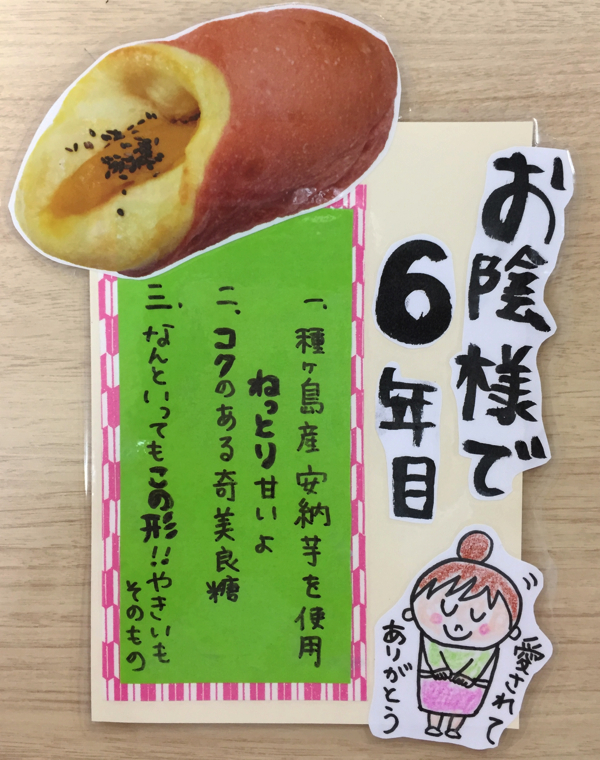 お陰様で
6年目
一、種ヶ島産安納芋を使用
ねっとり甘いよ
二、コクのある奇美良糖
三、なんといってもこの形!!やきいも
そのもの
愛されて
ありがとう